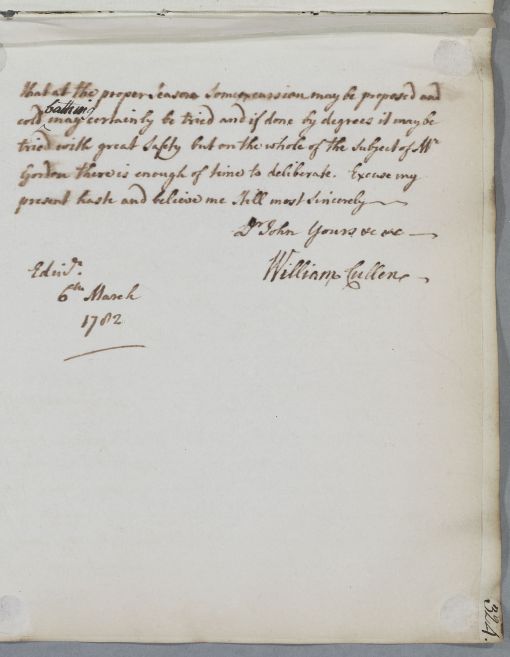 that at the proper Season Some excursion may be proposed and
cold bathing may certainly be tried and if done by degrees it may be
tried with great Safety but on the whole of the Subject of Mr
Gordon there is enough of time to deliberate. Excuse my
present haste and believe me Still most Sincerely
Dr John Yours &c &c
William Cullen
Edinr.
6th March
1782
324.